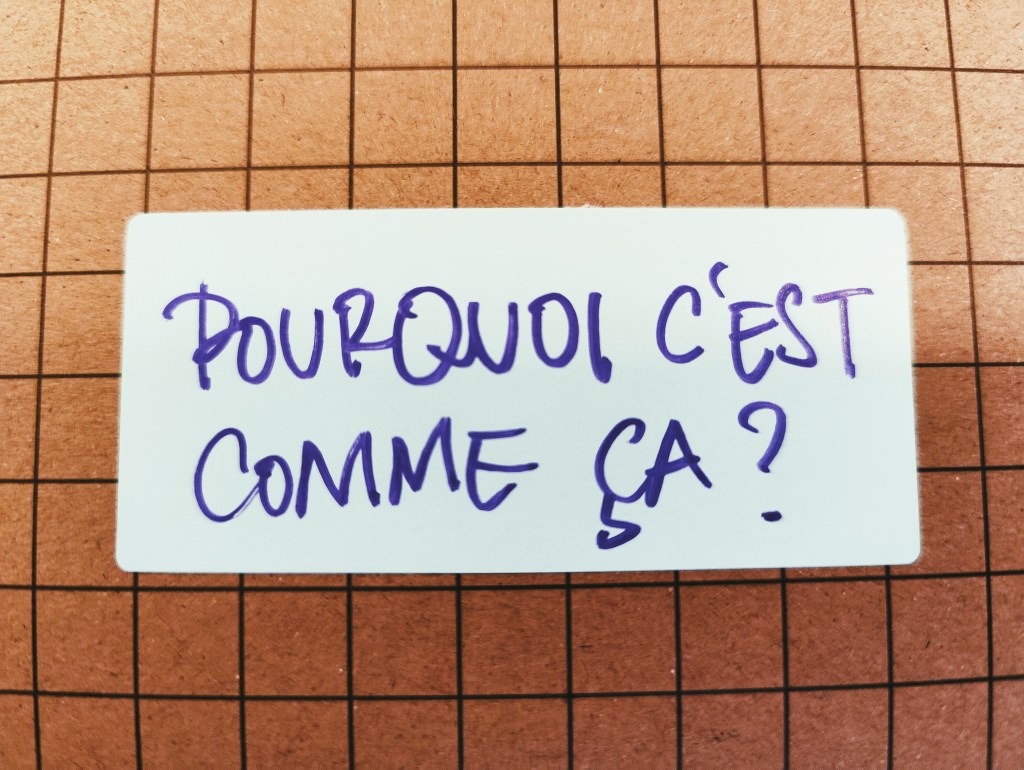 POURQUOI C'EST
COMME ÇA ?